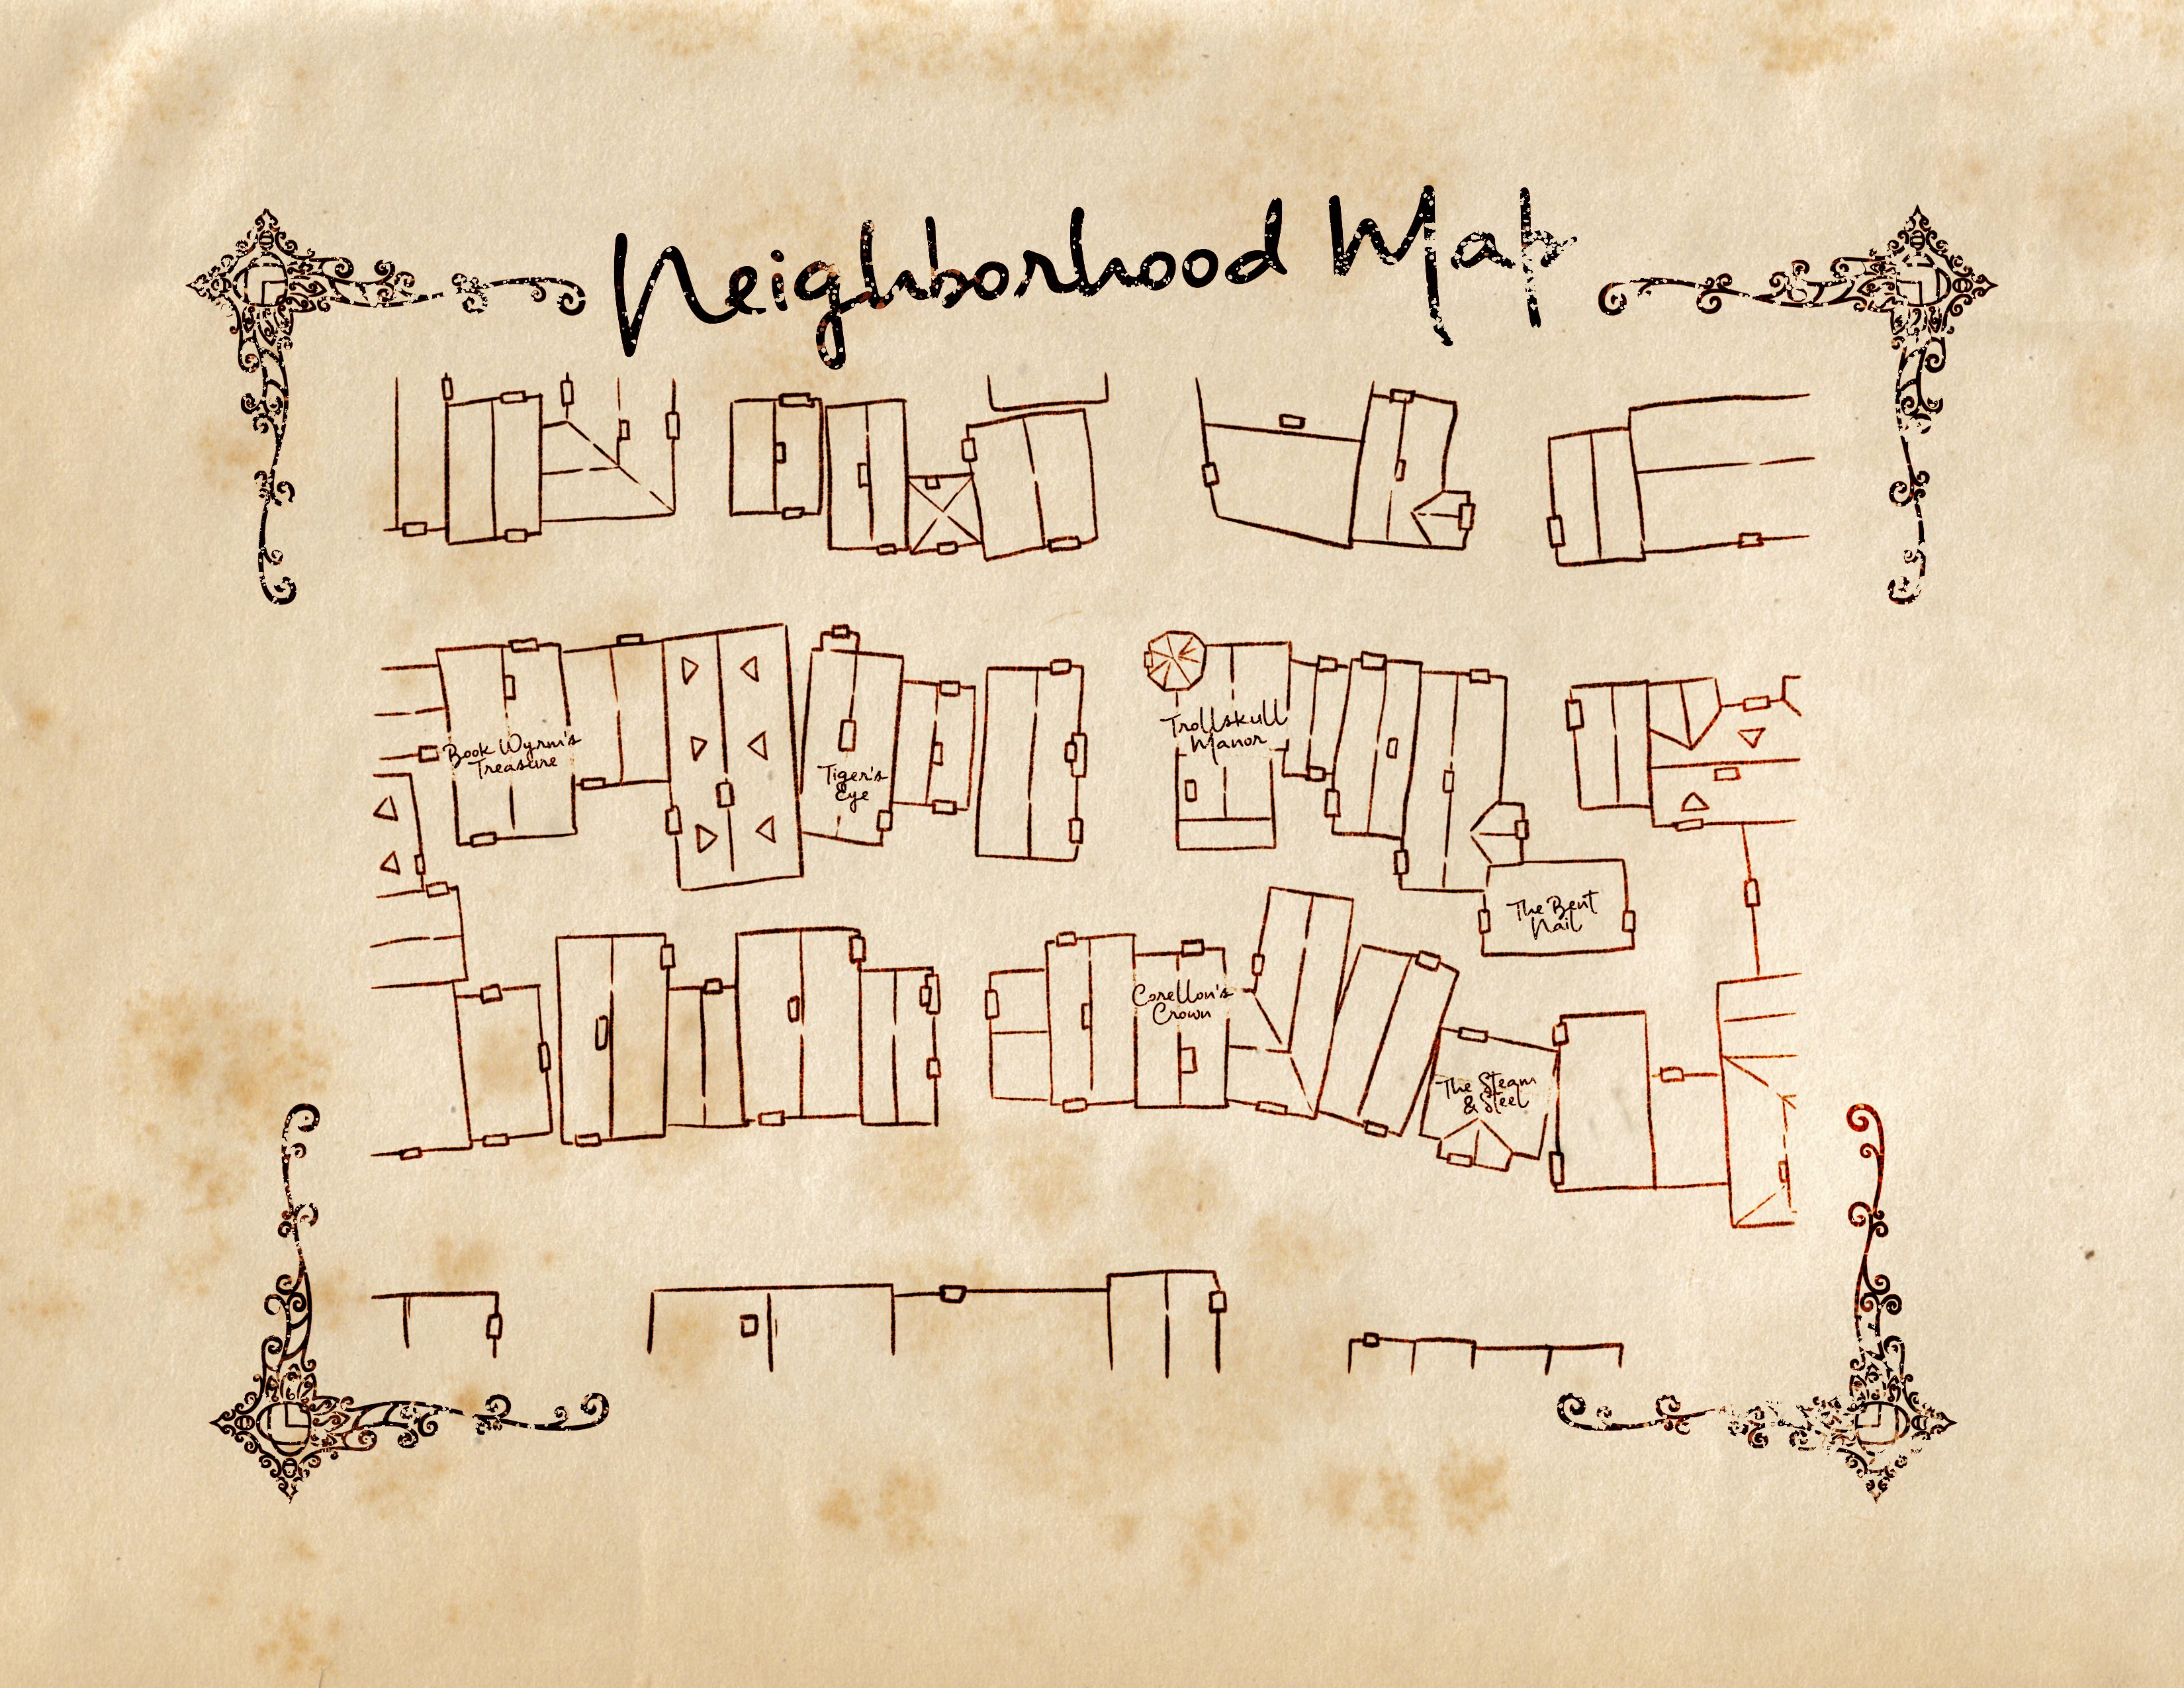 Neighborhood Map
Book Wyrm's
Treasure
Tiger's
Eye
Trollskull
Manor
The Bent
Nail
Corellon's
Crown
The Steam
& Steel